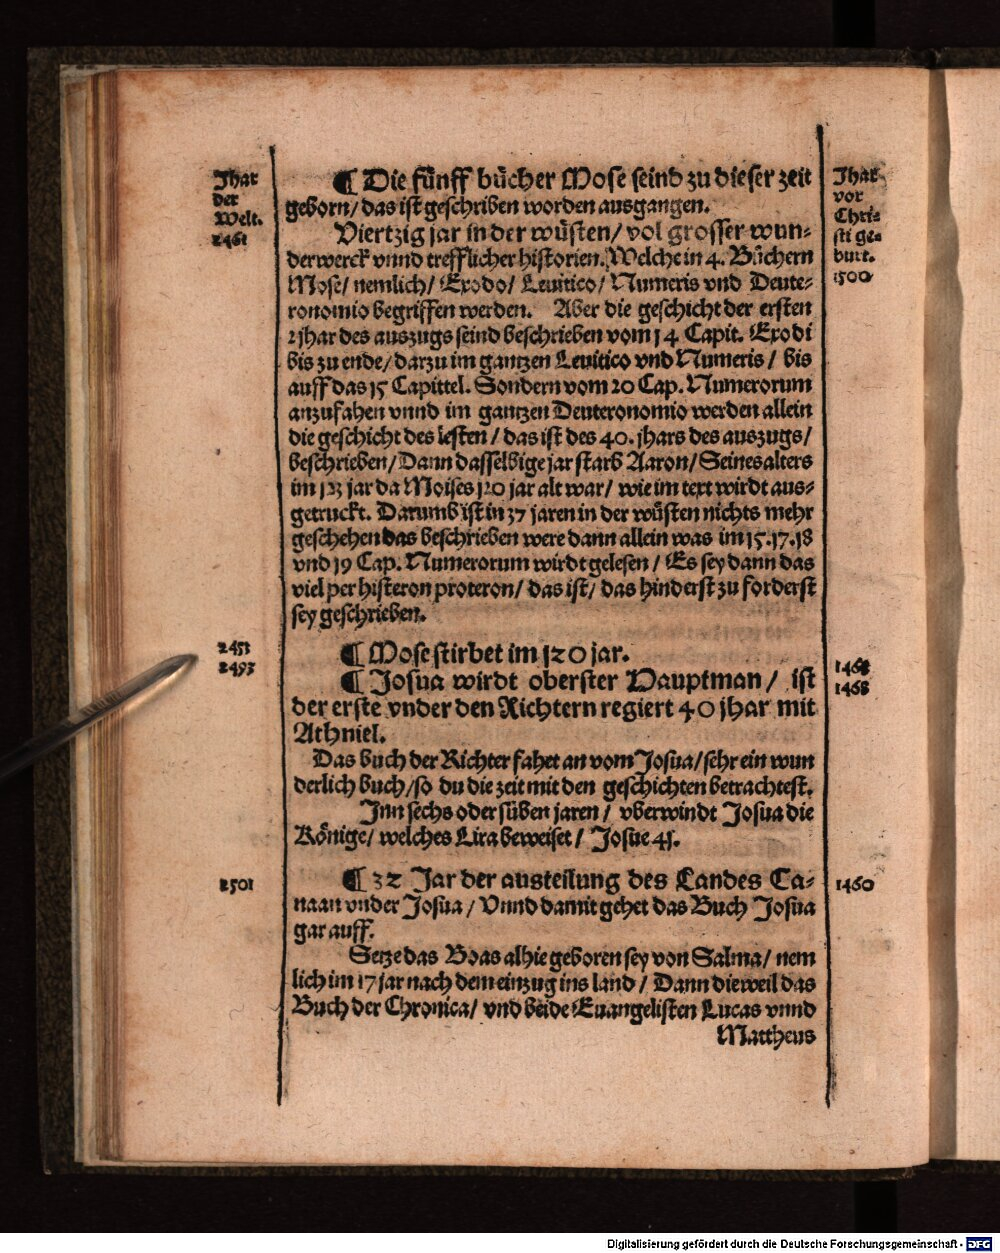 Jhar
der
Welt.
2461
¶ Die fünff bücher Mose seind zu dieser zeit
geborn/ das ist geschriben worden ausgangen.
Viertzig jar in der wüsten/ vol grosser wun⸗
derwerck vnnd trefflicher historien. Welche in 4. Büchern
Mose/ nemlich/ Exodo/ Leuitico/ Numeris vnd Deute⸗
ronomio begriffen werden. Aber die geschicht der ersten
2 jhar des auszugs seind beschrieben vom 14 Capit. Exodi
bis zu ende/ darzu im gantzen Leuitico vnd Numeris/ bis
auff das 15 Capittel. Sondern vom 20 Cap. Numerorum
anzufahen vnnd im gantzen Deuteronomio werden allein
die geschicht des lesten/ das ist des 40. jhars des auszugs/
beschrieben/ Dann dasselbige jar starb Aaron/ Seines alters
im 123 jar da Moises 120 jar alt war/ wie im text wirdt aus⸗
getruckt. Darumb ist in 37 jaren in der wüsten nichts mehr
geschehen das beschrieben were dann allein was im 15. 17. 18
vnd 19 Cap. Numerorum wirdt gelesen/ Es sey dann das
viel per histeron proteron/ das ist/ das hinderst zu forderst
sey geschrieben.
Jhar
vor
Chri⸗
sti ge⸗
burt.
1500
2453
2493
¶ Mose stirbet im 120 jar.
¶ Josua wirdt oberster Hauptman/ ist
der erste vnder den Richtern regiert 40 jhar mit
Athniel.
1468
1468
Das buch der Richter fahet an vom Josua/ sehr ein wun
derlich buch/ so du die zeit mit den geschichten betrachtest.
Jnn sechs oder süben jaren/ vberwindt Josua die
Könige/ welches Lira beweiset/ Josue 4s.
2501
¶ 32 Jar der austeilung des Landes Ca⸗
naan vnder Josua/ Vnnd damit gehet das Buch Josua
gar auff.
1460
Setze das Boas alhie geboren sey von Salma/ nem
lich im 17 jar nach dem einzug ins land/ Dann dieweil das
Buch der Chronica/ vnd beide Euangelisten Lucas vnnd
Mattheus
Digitalisierung gefördert durch die Deutsche Forschungsgemeinschaft - DFG